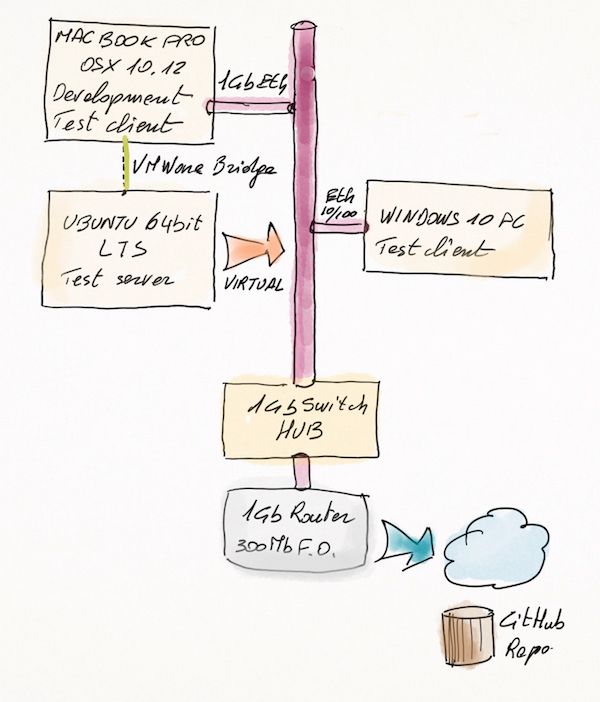 MACBOOK PRO
OSX 10.12
Development
Test client
1Gb Eth
VMWare Bridge
UBUNTU 64bit
LTS
Test server
VIRTUAL
Eth
10/100
WINDOWS 10 PC
Test client
1Gb Switch
HUB
1Gb Router
300Mb F.O.
GitHub
Repo.